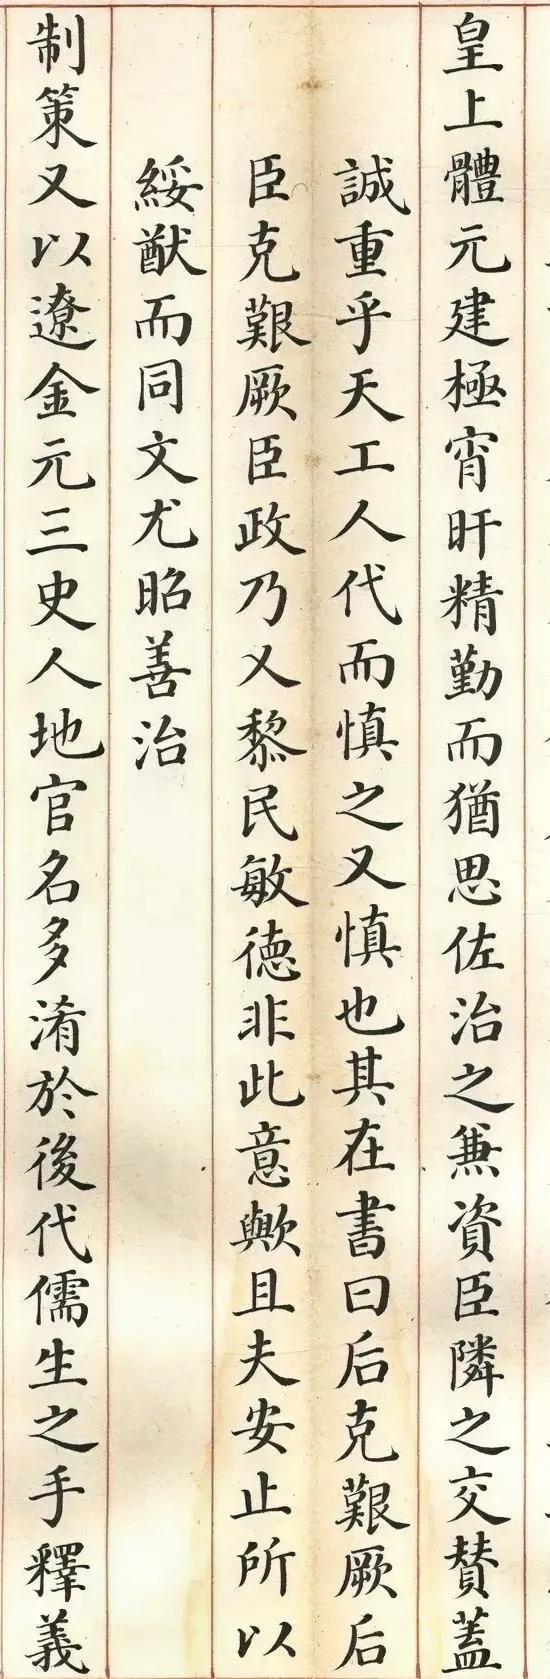 皇上體元建極宵旰精勤而猶思佐治之兼資臣隣之交賛蓋
誠重乎天工人代而慎之又慎也其在書曰后克艱厥后
臣克艱厥臣政乃乂黎民敏德非此意歟且夫安止所以
綏猷而同文尤昭善治
制策又以遼金元三史人地官名多淆於後代儒生之手釋義